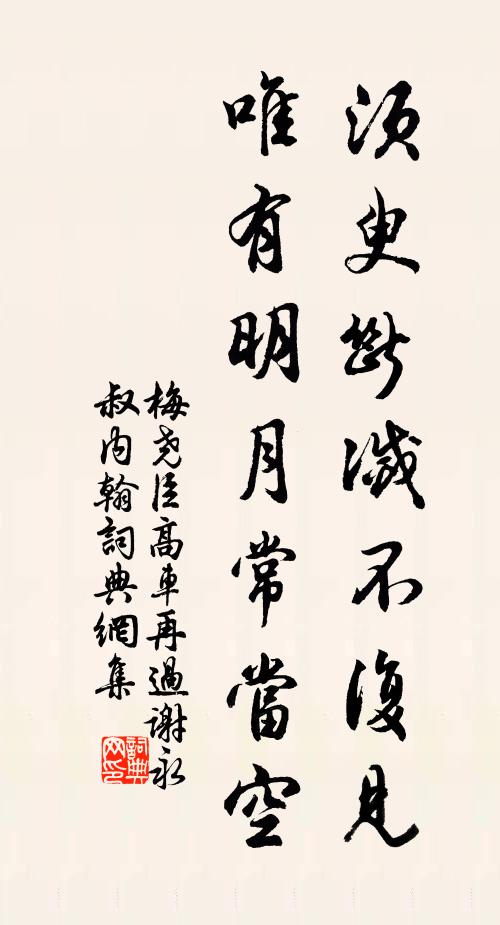 須臾斷滅不復見
唯有明月常當空
梅堯臣高車再過謝永
叔内翰詞典網集
詞典網印